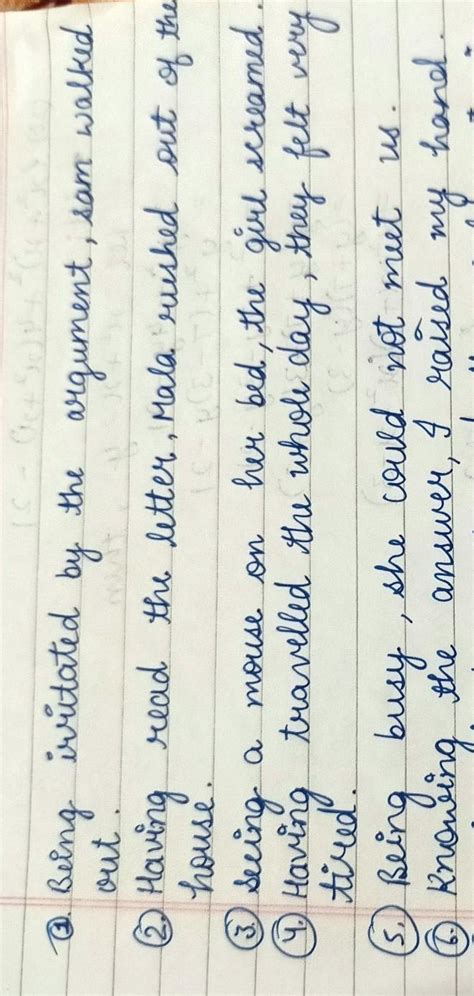 1. Being irritated by the argument, Sam walked
out.
2. Having read the letter, Mala rushed out of the
house.
3. Seeing a mouse on her bed, the girl screamed.
4. Having travelled the whole day, they felt very
tired.
5. Being busy, she could not meet us.
6. Knowing the answer, I raised my hand.